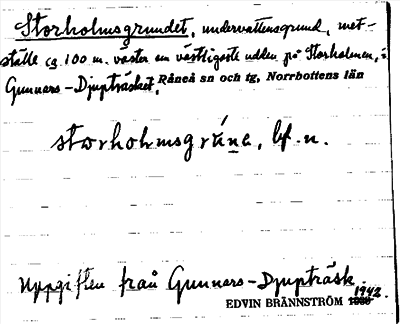 Storholmsgrundet, undervattensgrund, met-
ställe ca 100 m. väster om västligaste udden på Storholmen, i
Gunnars-Djupträsket, Råneå sn och tg, Norrbottens län
storholmsgrúne, bf. n.
Uppgiften från Gunnars-Djupträsk
1942.
EDVIN BRÄNNSTRÖM